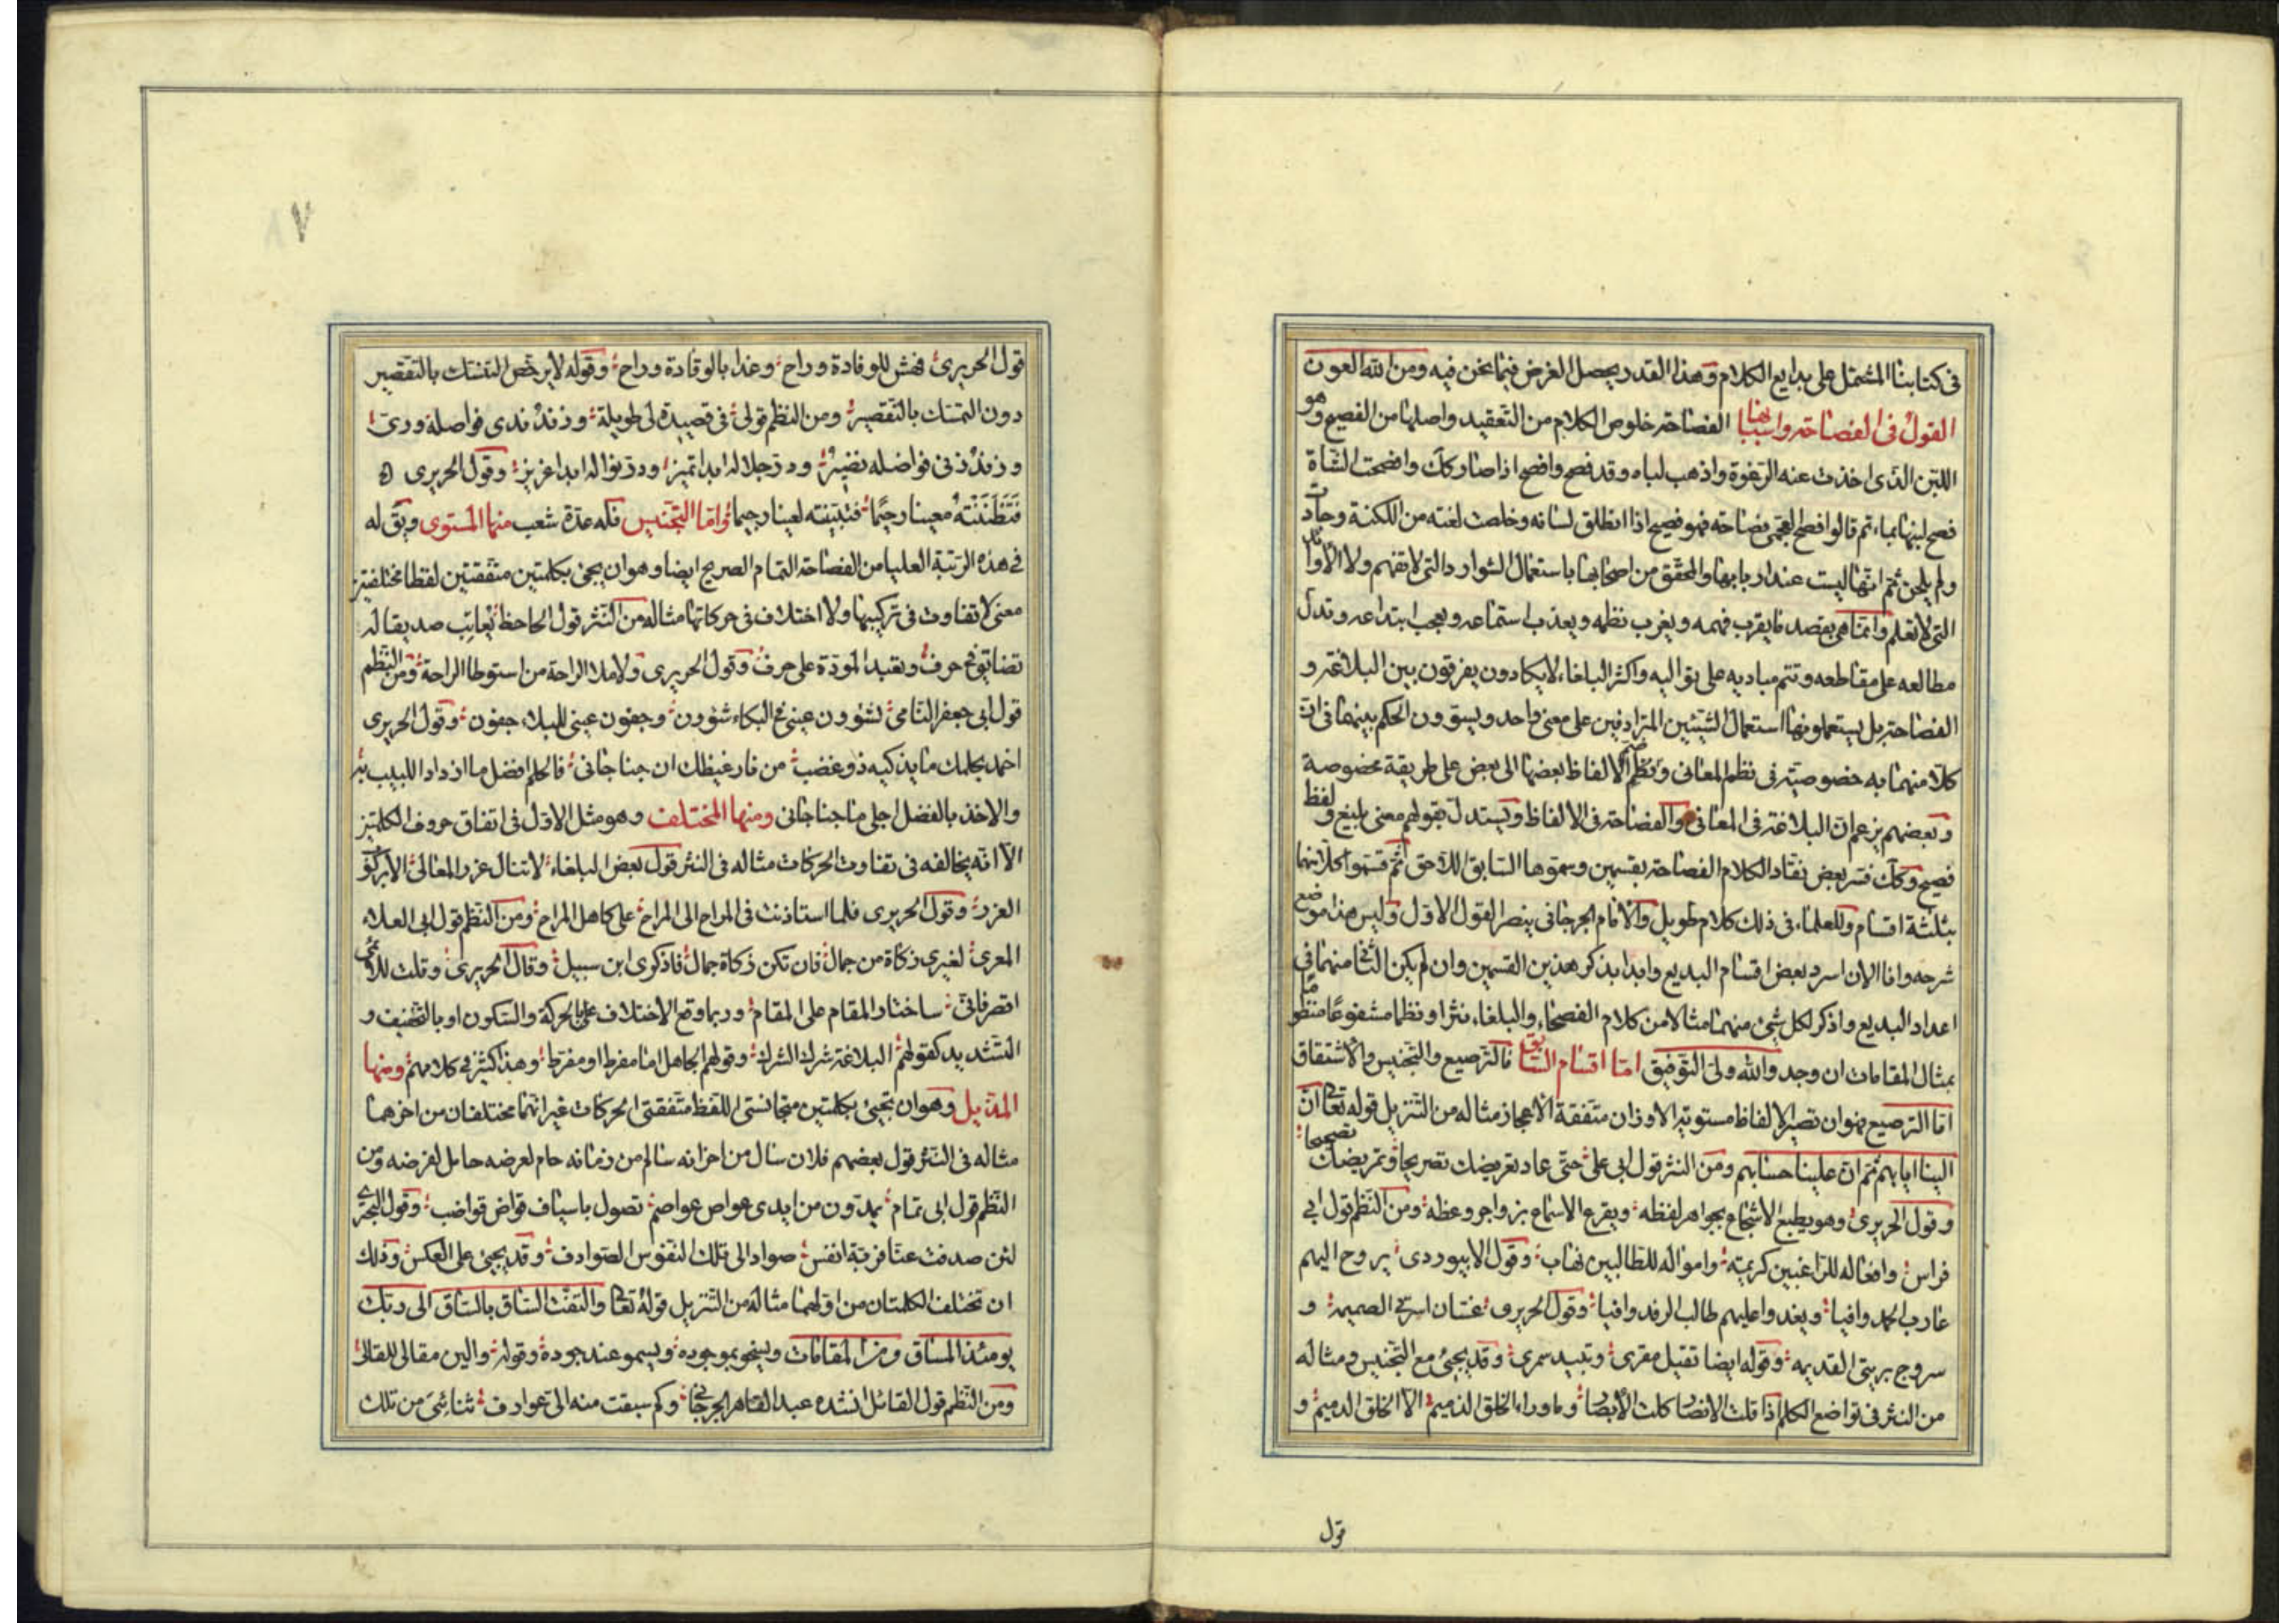 في كتابنا المشتمل على بدايع الكلام وهذا القدر يحصل الغرض فيما نحن فيه ومن الله العون
القول في الفصاحة واسبابها الفصاحة خلوص الكلام من التعقيد واصلها من الفصيح وهو
اللبن الذى اخذت عنه الرغوة واذهب لباه وقد فصح وافصح اذا صار كك وافصحت الشاة
فصح لبنها ثم قالوا افصح العجمى فصاحة فهو فصيح اذا انطلق لسانه وخلصت لغته من اللكنة وجادت
ولم يلحن ثم انها ليست عند اربابها والمحقق من اصحابها باستعمال الشوارد التى لا تفهم ولا الاوابد
التى لا تعلم وانما هى بقصد ما يقرب فهمه ويغرب نظمه ويعذب استماعه ويعجب ابتداعه وتدل
مطالعه على مقاطعه وتتم مباديه على تواليه واكثر البلغاء لا يكادون يفرقون بين البلاغة و
الفصاحة بل يستعملونهما استعمال الشيئين المترادفين على معنى واحد ويسوون الحكم بينهما في ان
كلا منهما به خصوصية في نظم المعانى ونظم الالفاظ بعضها الى بعض على طريقة مخصوصة
وبعضهم يزعم ان البلاغة في المعانى والفصاحة في الالفاظ ويستدل بقولهم معنى بليغ ولفظ
فصيح وكك فسر بعض نقاد الكلام الفصاحة بقسمين وسموها السابق اللاحق ثم قسموا كلا منهما
بثلثة اقسام وللعلماء في ذلك كلام طويل والامام الجرجانى ينصر القول الاول وليس هذا موضع
شرحه وانا الان اسرد بعض اقسام البديع وابدا بذكر هذين القسمين وان لم يكن الثانى منهما في
اعداد البديع واذكر لكل شئ منهما مثالا من كلام الفصحاء والبلغاء نثرا ونظما مشفوعا منظوما
بمثال المقامات ان وجد والله ولى التوفيق اما اقسام السابق فالترصيع والتجنيس والاشتقاق
اما الترصيع فهو ان تصير الالفاظ مستوية الاوزان متفقة الاعجاز مثاله من التنزيل قوله تعالى ان
الينا ايابهم ثم ان علينا حسابهم ومن النثر قول ابى على حتى عاد تعريضك تصريحا وتمريضك تصحيحا
وقول الحريرى وهو يطبع الاسجاع بجواهر لفظه ويقرع الاسماع بزواجر وعظه ومن النظم قول ابى
فراس وافعاله للراغبين كريمة وامواله للطالبين نهاب وقول الابيوردى يروح اليهم
عازب الحمد وافيا ويغدو عليهم طالب الرفد وافيا وقول الحريرى غسان اسرتى الصميمة و
سروج تربتى القديمة وقوله ايضا تقيل مقرى وتبيد سمرى وقد يجئ مع التجنيس ومثاله
من النثر في تواضع الكلم اذا قلت الانصار كلت الابصار وما وراء الخلق الذميم الا الخلق الدميم و
قول
٨٧
قول الحريرى فهش للوفادة وراح وغدا بالوقادة وراح وقوله لا يرخص التنسك بالتقصير
دون التمسك بالتقصير ومن النظم قولى في قصيدة لى طويلة وزند ندى فواضله ورى
وزند ذى فواضله نضير ودر جلاله ابدا تميز ودر نواله ابدا غزيز وقول الحريرى
فتظننته معينا رجيما فتبينته لعينا رجيما واما التجنيس فله عدة شعب منها المستوى ويق له
في هذه الرتبة العليا من الفصاحة التام الصريح ايضا وهو ان يجئ بكلمتين متفقتين لفظا مختلفتين
معنى لا تفاوت في تركيبها ولا اختلاف في حركاتها مثاله من النثر قول الجاحظ يعاتب صديقا له
تضايق في حرف ويقيد المودة على حرف وقول الحريرى ولا ملا الراحة من استوطا الراحة ومن النظم
قول ابى جعفر النامى لشؤون عينى في البكاء شؤون وجفون عينى للبلاء جفون وقول الحريرى
اخمد بحلمك ما يذكيه ذو غضب من نار غيظك ان جنا جانى فالحلم افضل ما ازداد اللبيب به
والاخذ بالفضل احلى ما جنا جانى ومنها المختلف وهو مثل الاول في اتفاق حروف الكلمتين
الا انه يخالفه في تفاوت الحركات مثاله في النثر قول بعض البلغاء لا تنال غرر المعالى الا بركوب
الغرر وقول الحريرى فلما استاذنت في المراح الى المراح على كاهل المراح ومن النظم قول ابى العلاء
المعرى لغيرى زكاة من جمال فان تكن زكاة جمال فاذكرى ابن سبيل وقال الحريرى وقلت للائمى
اقصر فانى ساختار المقام على المقام وربما وقع الاختلاف على بالحركة والسكون او بالتخفيف و
التشديد كقولهم البلاغة شرك الشرك وقولهم الجاهل اما مفرط او مفرط وهذا كثير في كلامهم ومنها
المذيل وهو ان تجئ بكلمتين متجانستى اللفظ متفقتى الحركات غير انهما مختلفان من اخرهما
مثاله في النثر قول بعضهم فلان سال من احزانه سالم من زمانه حام لعرضه حامل لفرضه ومن
النظم قول ابى تمام يمدون من ايدى عواص عواصم تصول باسياف قواض قواضب وقول البحترى
لئن صدفت عنا فربة انفس صواد الى تلك النفوس الصوادف وقد يجئ على العكس وذلك
ان تختلف الكلمتان من اولهما مثاله من التنزيل قوله تعالى والتفت الساق بالساق الى ربك
يومئذ المساق ومن المقامات ويسخو بموجوده ويسمو عند جوده وقوله والين مقالى للقالى
ومن النظم قول القائل انشده عبد القاهر الجرجانى وكم سبقت منه الى عوارف ثنائى من تلك